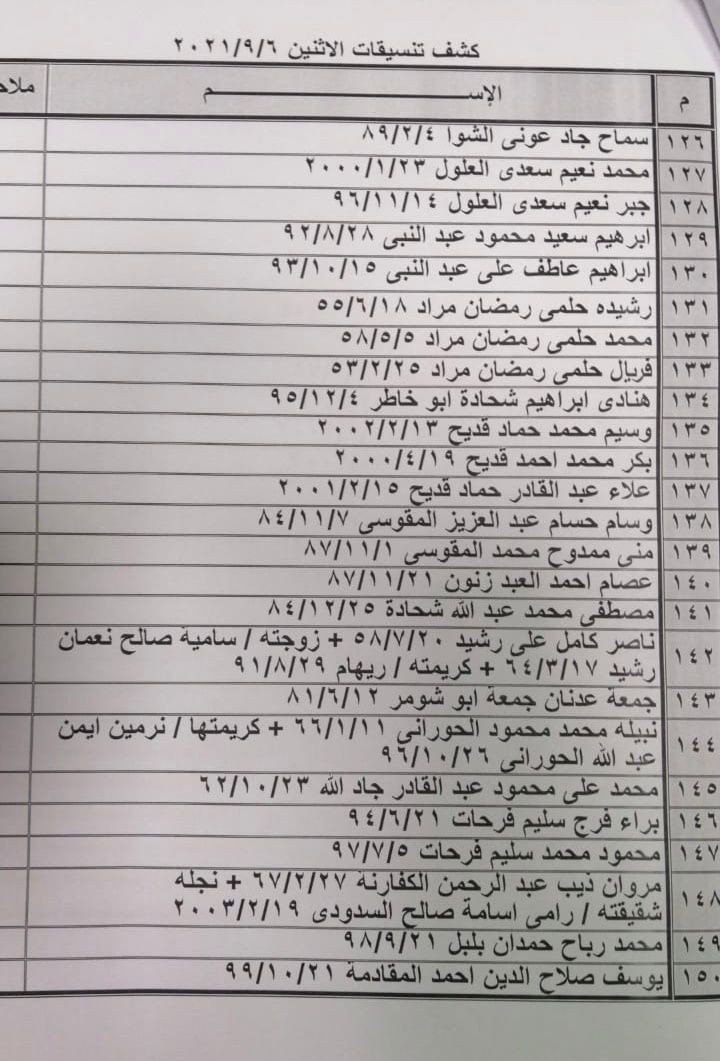 كشف تنسيقات الاثنين ٢٠٢١/٩/٦
م الإســــــــم ملاح
١٢٦ سماح جاد عونى الشوا ٨٩/٢/٤
١٢٧ محمد نعيم سعدى العلول ٢٠٠٠/١/٢٣
١٢٨ جبر نعيم سعدى العلول ٩٦/١١/١٤
١٢٩ ابرهيم سعيد محمود عبد النبى ٩٢/٨/٢٨
١٣٠ ابراهيم عاطف على عبد النبى ٩٣/١٠/١٥
١٣١ رشيده حلمى رمضان مراد ٥٥/٦/١٨
١٣٢ محمد حلمى رمضان مراد ٥٨/٥/٥
١٣٣ فريال حلمى رمضان مراد ٥٣/٢/٢٥
١٣٤ هنادى ابراهيم شحادة ابو خاطر ٩٥/١٢/٤
١٣٥ وسيم محمد حماد قديح ٢٠٠٢/٢/١٣
١٣٦ بكر محمد احمد قديح ٢٠٠٠/٤/١٩
١٣٧ علاء عبد القادر حماد قديح ٢٠٠١/٢/١٥
١٣٨ وسام حسام عبد العزيز المقوسى ٨٤/١١/٧
١٣٩ منى ممدوح محمد المقوسى ٨٧/١١/١
١٤٠ عصام احمد العبد زنون ٨٧/١١/٢١
١٤١ مصطفى محمد عبد الله شحادة ٨٤/١٢/٢٥
١٤٢ ناصر كامل على رشيد ٥٨/٧/٢٠ + زوجته / سامية صالح نعمان
رشيد ٦٤/٣/١٧ + كريمته / ريهام ٩١/٨/٢٩
١٤٣ جمعة عدنان جمعة ابو شومر ٨١/٦/١٢
١٤٤ نبيله محمد محمود الحورانى ٦٦/١/١١ + كريمتها / نرمين ايمن
عبد الله الحورانى ٩٦/١٠/٢٦
١٤٥ محمد على محمود عبد القادر جاد الله ٦٢/١٠/٢٣
١٤٦ براء فرج سليم فرحات ٩٤/٦/٢١
١٤٧ محمود محمد سليم فرحات ٩٧/٧/٥
١٤٨ مروان ذيب عبد الرحمن الكفارنة ٦٧/٢/٢٧ + نجله
شقيقته / رامى اسامة صالح السدودى ٢٠٠٣/٢/١٩
١٤٩ محمد رباح حمدان بلبل ٩٨/٩/٢١
١٥٠ يوسف صلاح الدين احمد المقادمة ٩٩/١٠/٢١